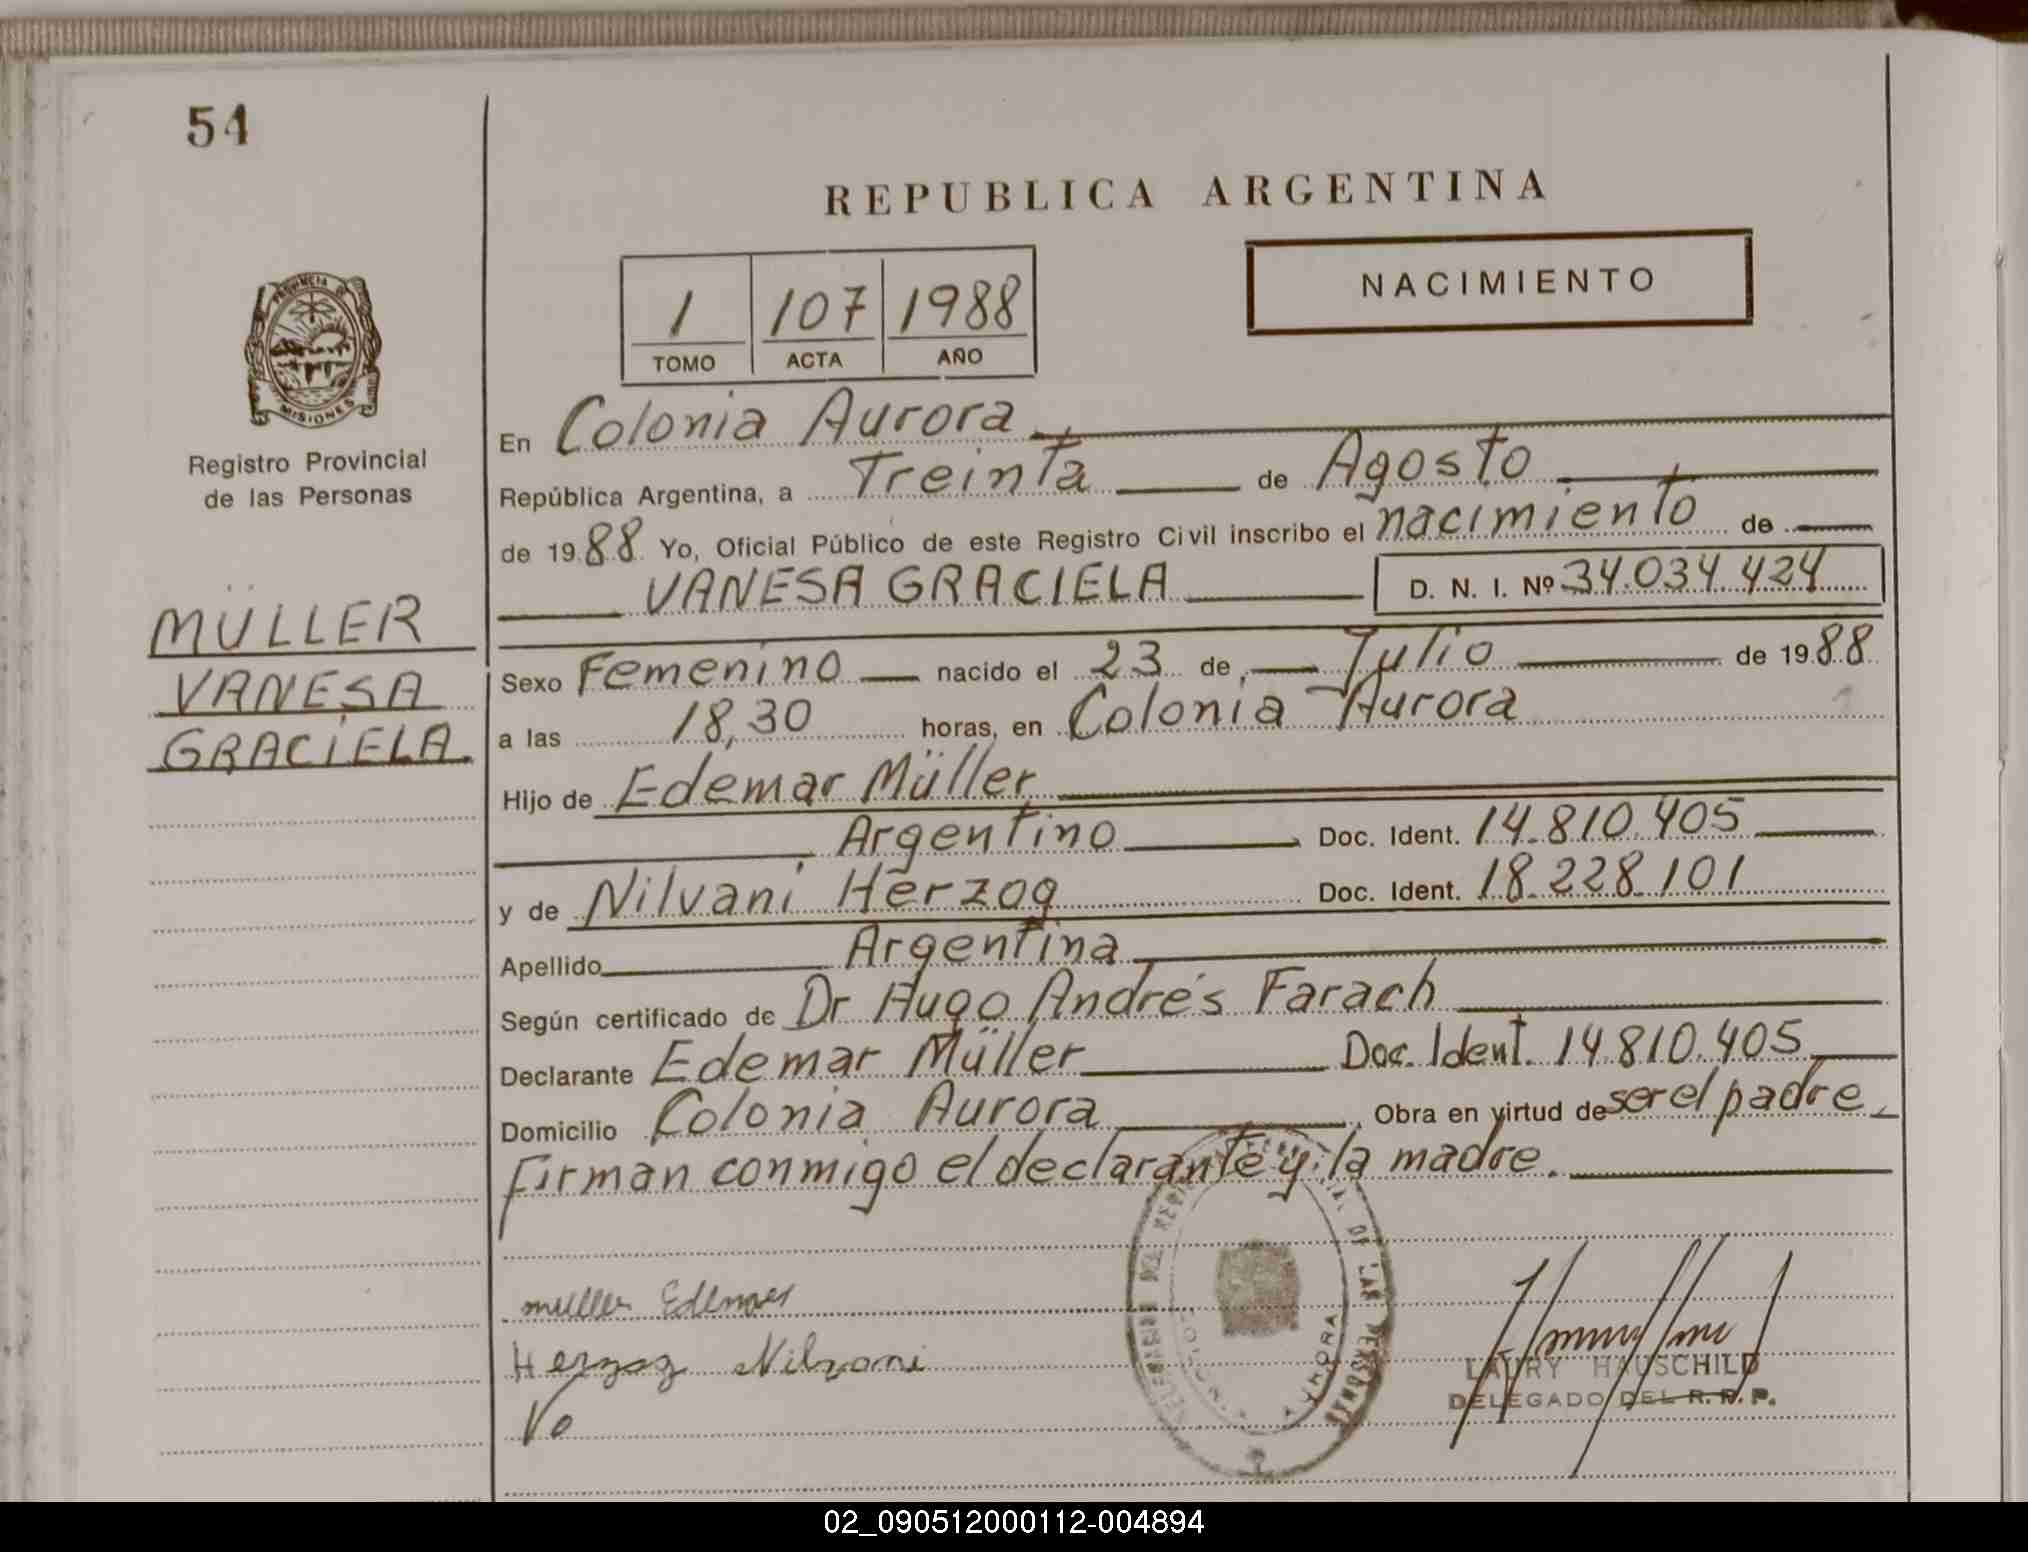 54
REPUBLICA ARGENTINA
NACIMIENTO
1 107 1988
TOMO ACTA AÑO
PROVINCIA DE
MISIONES
Registro Provincial
de las Personas
MÜLLER
VANESA
GRACIELA
En Colonia Aurora
República Argentina, a Treinta de Agosto
de 1988 Yo, Oficial Público de este Registro Civil inscribo el nacimiento de
VANESA GRACIELA D. N. I. Nº 34.034.424
Sexo Femenino nacido el 23 de Julio de 1988
a las 18,30 horas, en Colonia Aurora
Hijo de Edemar Müller
Argentino Doc. Ident. 14.810.405
y de Nilvani Herzog Doc. Ident. 18.228.101
Apellido Argentina
Según certificado de Dr Hugo Andrés Farach
Declarante Edemar Müller Doc. Ident. 14.810.405
Domicilio Colonia Aurora Obra en virtud de ser el padre
Firman conmigo el declarante y la madre.
muller Edemar
Herzog Nilvani
Vo
DE LAS PERSONAS
AURORA
LAURY HAUSCHILD
DELEGADO DEL R. R. P.
02_090512000112-004894